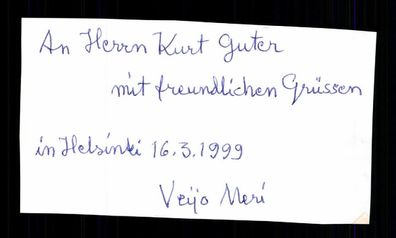 An Herrn Kurt Guter
mit freundlichen Grüssen
in Helsinki 16.3.1999
Veijo Meri